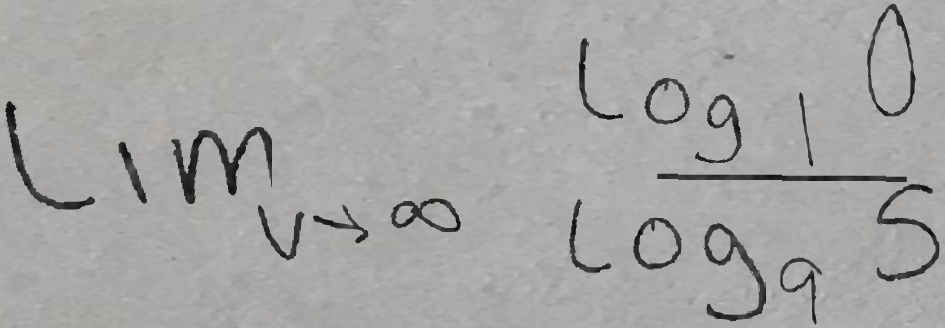 \lim_{v \to \infty} \frac{\log_1 0}{\log_9 5}